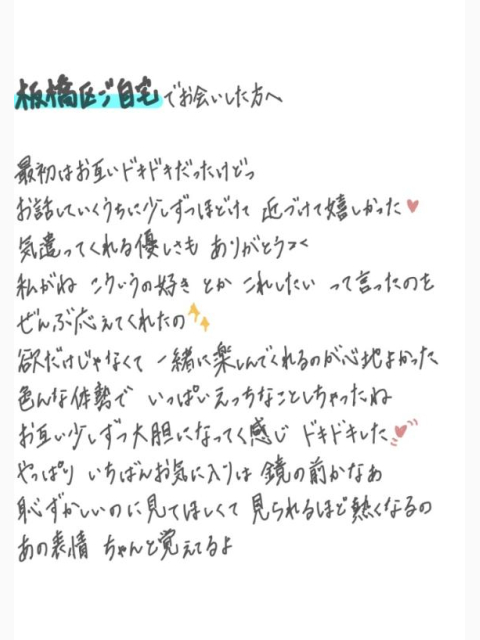 板橋区ご自宅でお会いした方へ
最初はお互いドキドキだったけどっ
お話していくうちに少しずつほどけて 近づけて嬉しかった
気遣ってくれる優しさも ありがとう>く
私がね こういうの好き とか これしたい って言ったのを
ぜんぶ応えてくれたの
欲だけじゃなくて 一緒に楽しんでくれるのが心地よかった
色んな体勢で いっぱいえっちなことしちゃったね
お互い少しずつ大胆になってく感じ ドキドキした
やっぱり いちばんお気に入りは 鏡の前かなあ
恥ずかしいのに見てほしくて 見られるほど熱くなるの
あの表情 ちゃんと覚えてるよ